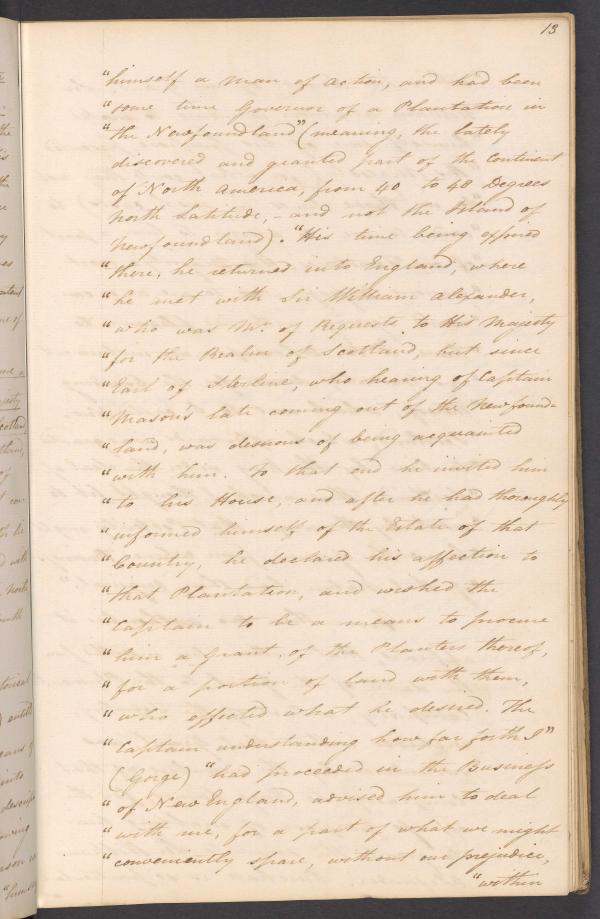 13
"himself a man of action, and had been
"some time Governor of a Plantation in
"the Newfoundland" (meaning, the lately
discovered and granted part of the Continent
of North America, from 40 to 48 Degrees
North Latitude, - and not the Island of
Newfoundland). "His time being expired
"there, he returned into England, where
"he met with Sir William Alexander,
"who was Mr. of Requests to His Majesty
"for the Realm of Scotland, but since
"Earl of Sterline, who hearing of Captain
"Mason's late coming out of the Newfound-
"land, was desirous of being acquainted
"with him. To that end he invited him
"to his House, and after he had thoroughly
"informed himself of the Estate of that
"Country, he declared his affection to
"that Plantation, and wished the
"Captain to be a means to procure
"him a Grant, of the Planters thereof,
"for a portion of land with them,
"who effected what he desired. The
"Captain understanding how far forth I"
(Gorge) "had proceeded in the Business
"of New England, advised him to deal
"with me, for a part of what we might
"conveniently spare, without our prejudice,
"within